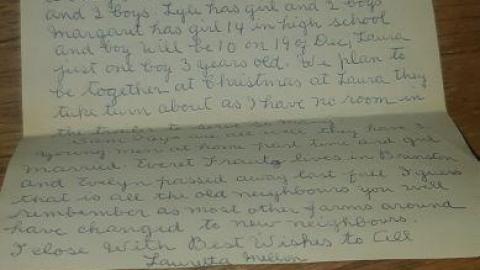 and 2 boys. Lyle has girl and 2 boys
Margaret has girl 14 in high school
and boy will be 10 on 19 of Dec, Laura
just one boy 3 years old. We plan to
be together at Christmas at Laura they
take turn about as I have no room in
the trailer to serve so many
are all well they have 3
young men at home part time and girl
married. Everet lives in
and Evelyn passed away last fall I guess
that is all the old neighbours you will
remember as most other farms around
have changed to new neighbours.
I close With Best Wishes to All